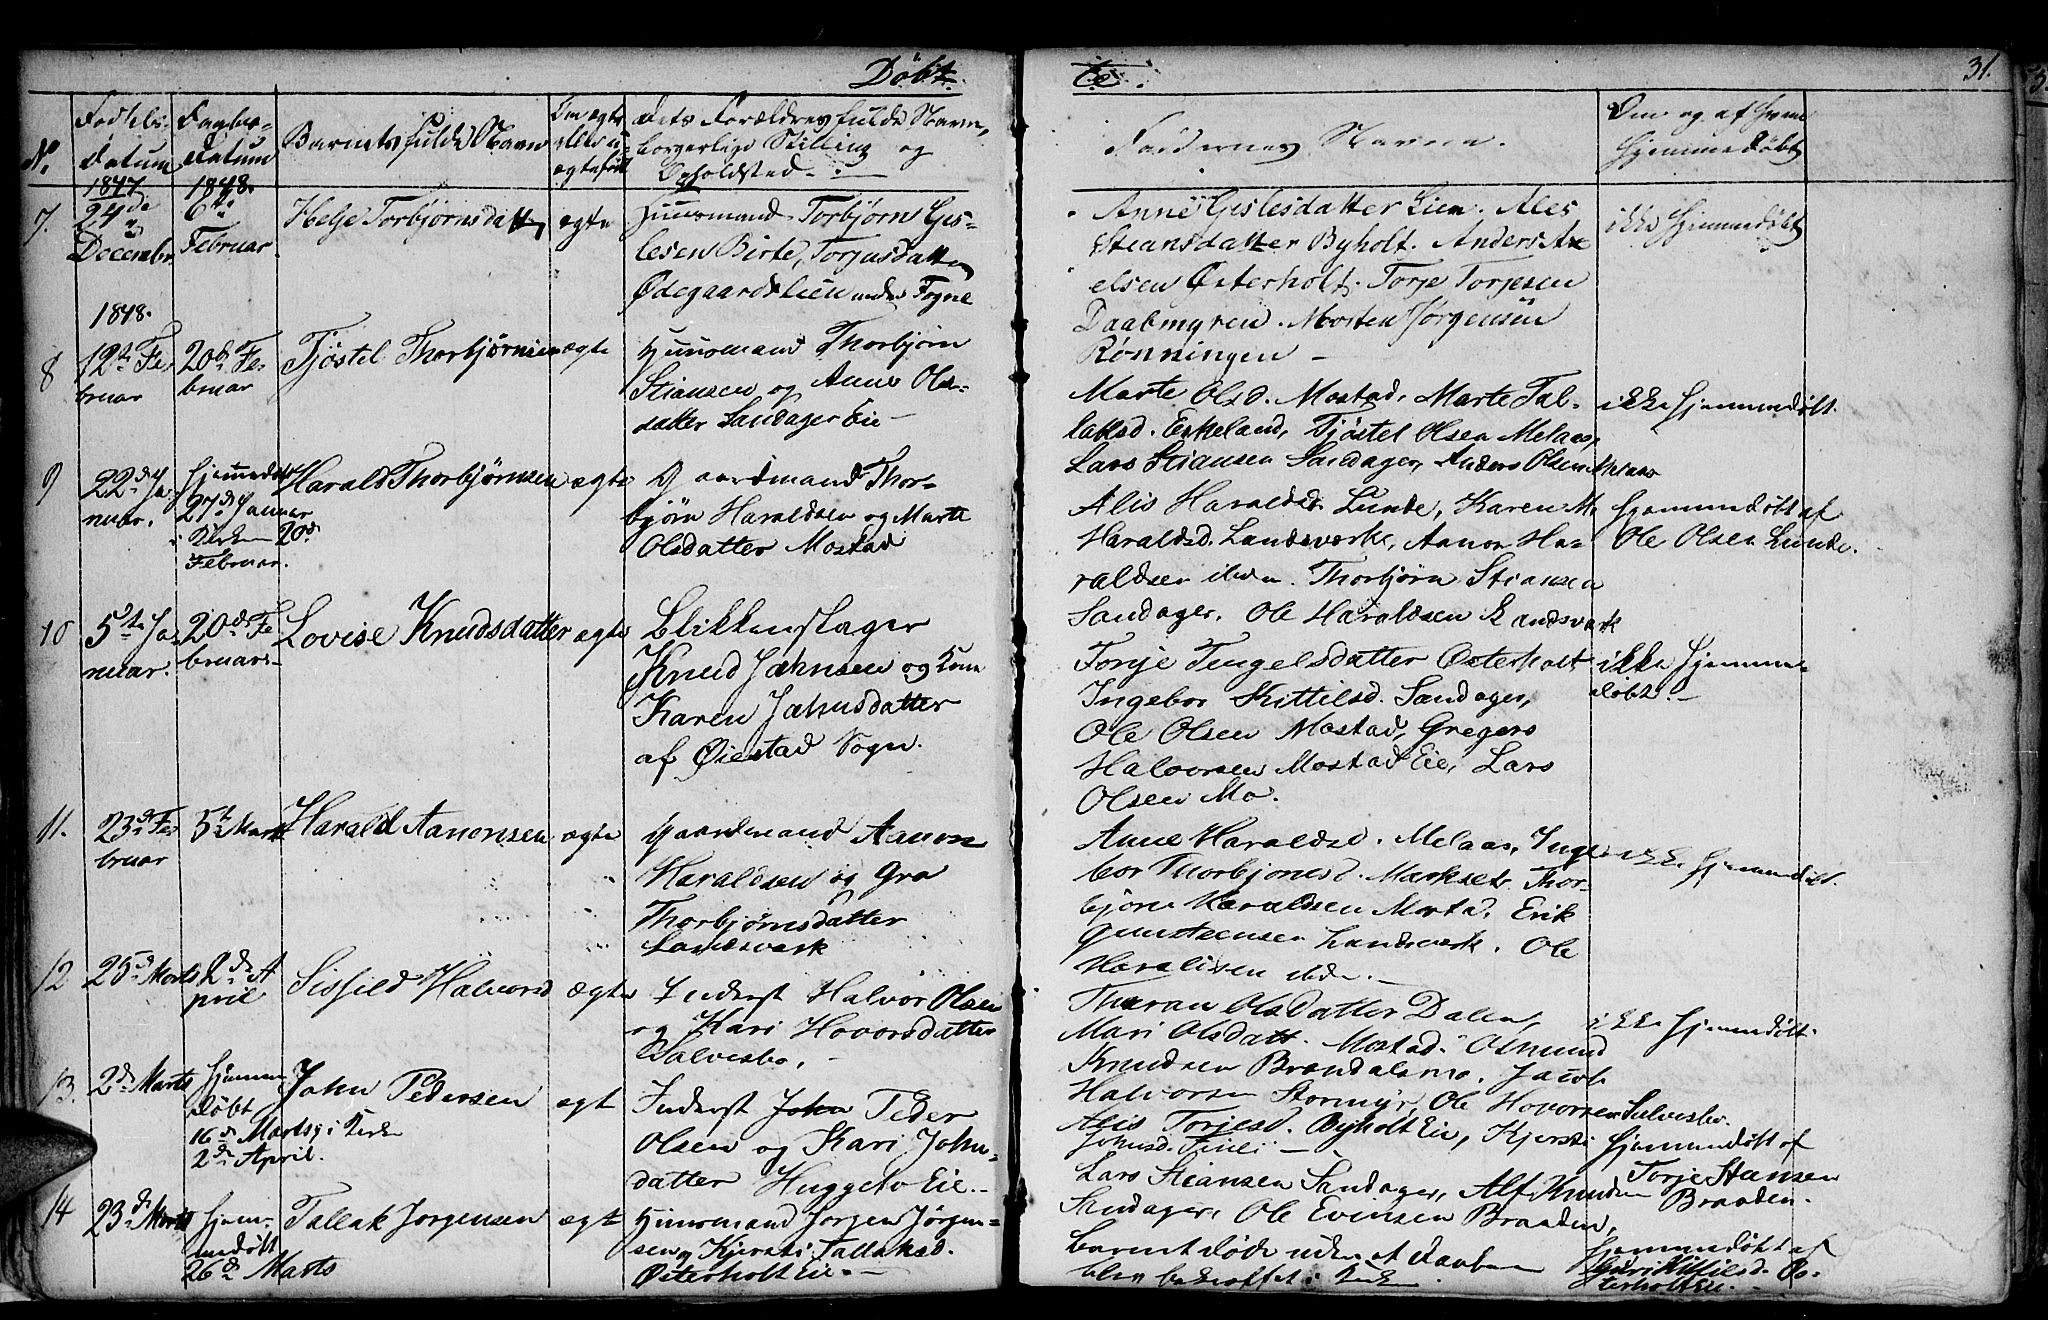 Døbt
te.
31.
No.
Fødsels-
Datum
Daabs-
Datum
Barnets fulde Navn
Om ægte
eller u-
ægtefødt
Dets Forældres fulde Navn,
borgerlige Stilling og
Opholdsted.
Faddernes Navne.
Om og af hvem
hjemmedøbt
7.
1847
24de
Decembr.
1848.
6te
Februar.
Helje Torbjørnsdatter
ægte
Huusmand Torbjørn Gis-
lesen Birte Torjusdatter
Ødegaardslien under Fogne
Anne Gislesdatter Lien. Ales
Stiansdatter Byholt. Anders Ax
elsen Østerholt. Torje Torjesen
Daabmyren. Morten Jørgensen
Rønningen
ikke hjemmedøbt
1848.
8
12te Fe-
bruar
20de Fe-
bruar
Tjøstel Thorbjørnsen
ægte
Huusmand Thorbjørn
Stiansen og Anne Ols-
datter Sandager Eie
Marte Olsd. Mostad, Marte Tal-
laksd. Eskeland, Tjøstel Olsen Melaas,
Lars Stiansen Sandager, Anders Olsen Melaas
ikke hjemmedøbt.
9
22de Ja-
nuar.
hjemmedøbt
27de Januar
i Kirken 20de
Februar.
Harald Thorbjørnsen
ægte
Gaardmand Thor-
bjørn Haraldsen og Marte
Olsdatter Mostad
Alis Haraldsd. Lunde, Karen M.
Haraldsd. Landsverk, Aanon Ha-
raldsen ibdm. Thorbjørn Stiansen
Sandager, Ole Haraldsen Landsverk
hjemmedøbt af
Ole Olsen Lunde.
10
5te Ja-
nuar.
20de Fe
bruar
Lovise Knudsdatter
ægte
Blikkenslager
Knud Jahnsen og Kone
Karen Jahnsdatter
af Øiestad Sogn.
Torje Tengelsdatter Østerholt
Ingebor Kittilsd. Sandager,
Ole Olsen Mostad, Gregers
Halvorsen Mostad Eie, Lars
Olsen Mo.
ikke hjemme-
døbt.
11.
23de Fe-
bruar
5te Marts
Harald Aanonsen
ægte
Gaardmand Aanon
Haraldsen og Gro
Thorbjørnsdatter
Landsverk
Anne Haraldsd. Melaas, Inge
bor Thorbjonsd. Markset. Thor-
bjørn Haraldsen Mostad, Erik
Gunsteensen Landsverk. Ole
Haraldsen ibdm.
ikke hjemmedøbt.
12
25de Marts
2den A
pril
Sigfeld Halvorsd
ægte
Inderst Halvor Olsen
og Kari Hovorsdatter
Salvesbo.
Tharan Olsdatter Dalen,
Mari Olsdatt. Mostad. Osmund
Knudsen Brandalsmo. Jacob
Halvorsen Stormyr, Ole Hovorsen Salvesbo.
ikke hjemmedøbt.
13.
2den Marts
hjemme
døbt
16de Marts, i Kirken
2den April.
John Pedersen
ægt
Inderst John Peder
Olsen og Kari John-
datter Huggeto Eie.
Alis Torjesd. Byholt Eie, Kjersti
Johnsd.
Lars Stiansen Sandager, Alf Knudsen
Sandager, Ole Evensen Braaden,
hjemmedøbt af
Torje Stansen
Braaden.
14
23de Marts
hjem-
medøbt
26de Marts
Tallak Jørgensen
ægt
Huusmand Jørgen Jørgen-
sen og Kjersti Tallaksd.
Østerholt Eie.
Barnet døde uden at Daaben
blev bekræftet i Kirken
hjemmedøbt af
Kittilsd. Øs-
terholt Eie.